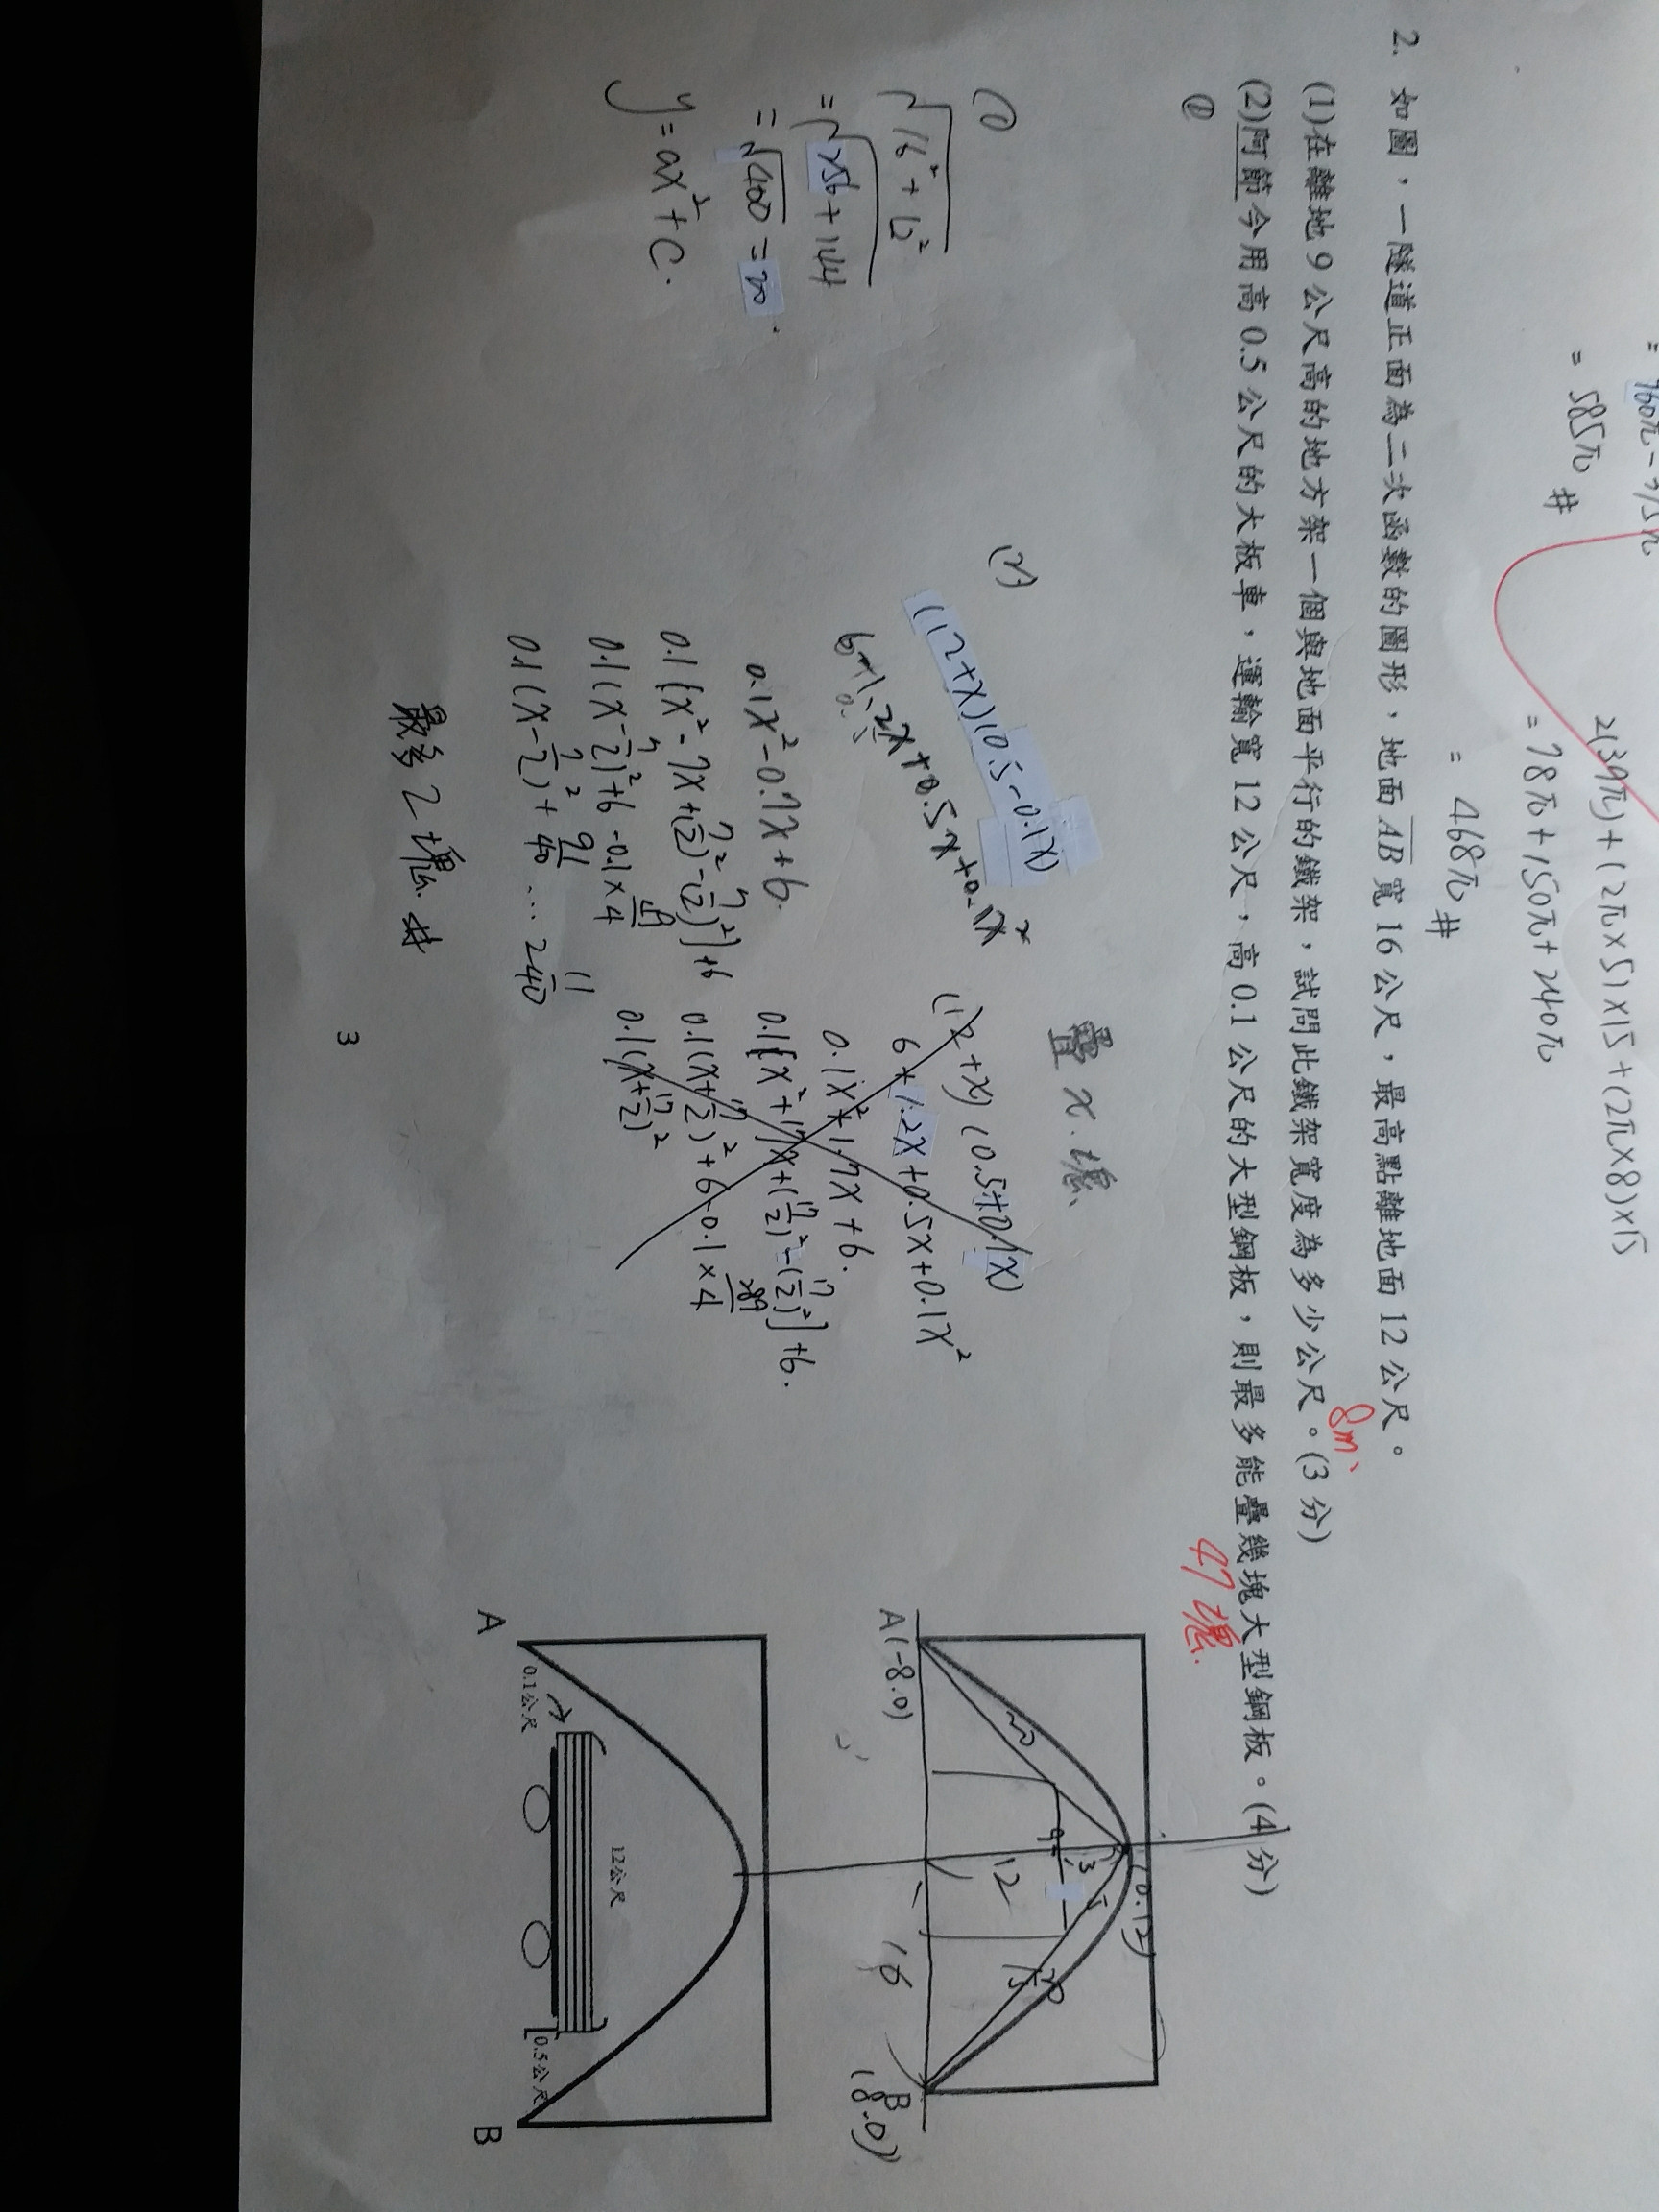 = 960π - 375π
= 585π #
2(39π) + (2π×5)×15 + (2π×8)×15
= 78π + 150π + 240π
= 468π #
2. 如圖，一隧道正面為二次函數的圖形，地面AB寬16公尺，最高點離地面12公尺。
(1)在離地9公尺高的地方架一個與地面平行的鐵架，試問此鐵架寬度為多少公尺。(3分)
8m、
(2)阿節今用高0.5公尺的大板車，運輸寬12公尺，高0.1公尺的大型鋼板，則最多能疊幾塊大型鋼板。(4分)
47塊.
①
(1)
√16²+12²
=√256+144
=√400 = 20.
y = ax² + c.
(2)
(12+x)(0.5-0.1x)
6-1.2x+0.5x+0.1x²
0.1x²-0.7x+6.
0.1[x²-7x+(7/2)²-(7/2)²]+6
0.1(x-7/2)²+6-0.1×49/4
0.1(x-7/2)²+91/40 ... 2 11/40
最多2塊 #
疊x塊
(12+x)(0.5+0.1x)
6+1.2x+0.5x+0.1x²
0.1x²+1.7x+6.
0.1[x²+17x+(17/2)²-(17/2)²]+6.
0.1(x+17/2)²+6-0.1×289/4
0.1(x+17/2)²
(0.12)
20
9
3
5
12
15
20
A(-8.0)
16
B
(8.0)
12公尺
0.1公尺
0.5公尺
A
B
3